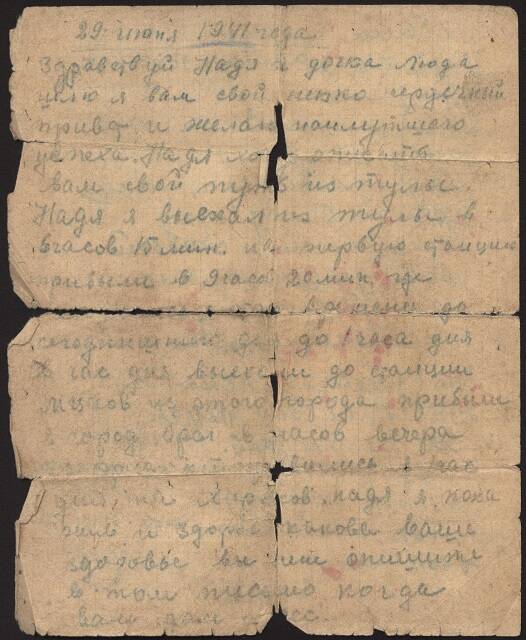 29 июня 1941 года
Здравствуй Надя и дочка Люда
шлю я вам свой низко сердечный
привет и желаю наилучшего
успеха. Надя хочу описать
вам свой путь из тулы.
Надя я выехал из тулы в
8 часов 15 мин. на первую станцию
прибыли в 9 часов 20 мин. где
времени до
сегодняшнего дня до 1 часа дня
В час дня выехали до станции
из этого города прибыли
в город в часов вечера
в час
дня, на Харьков. Надя я пока
жив и здоров каково ваше
здоровье
в том письмо когда
вам дам